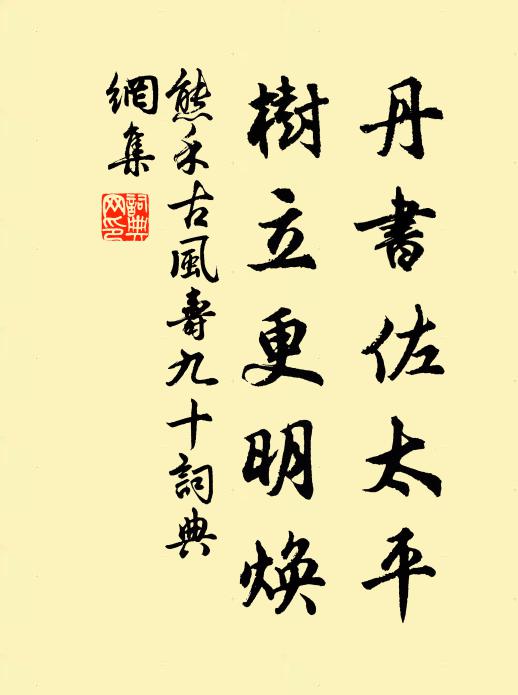 丹書佐太平
樹立更明煥
熊禾古風壽九十詞典
網集
詞典
网印